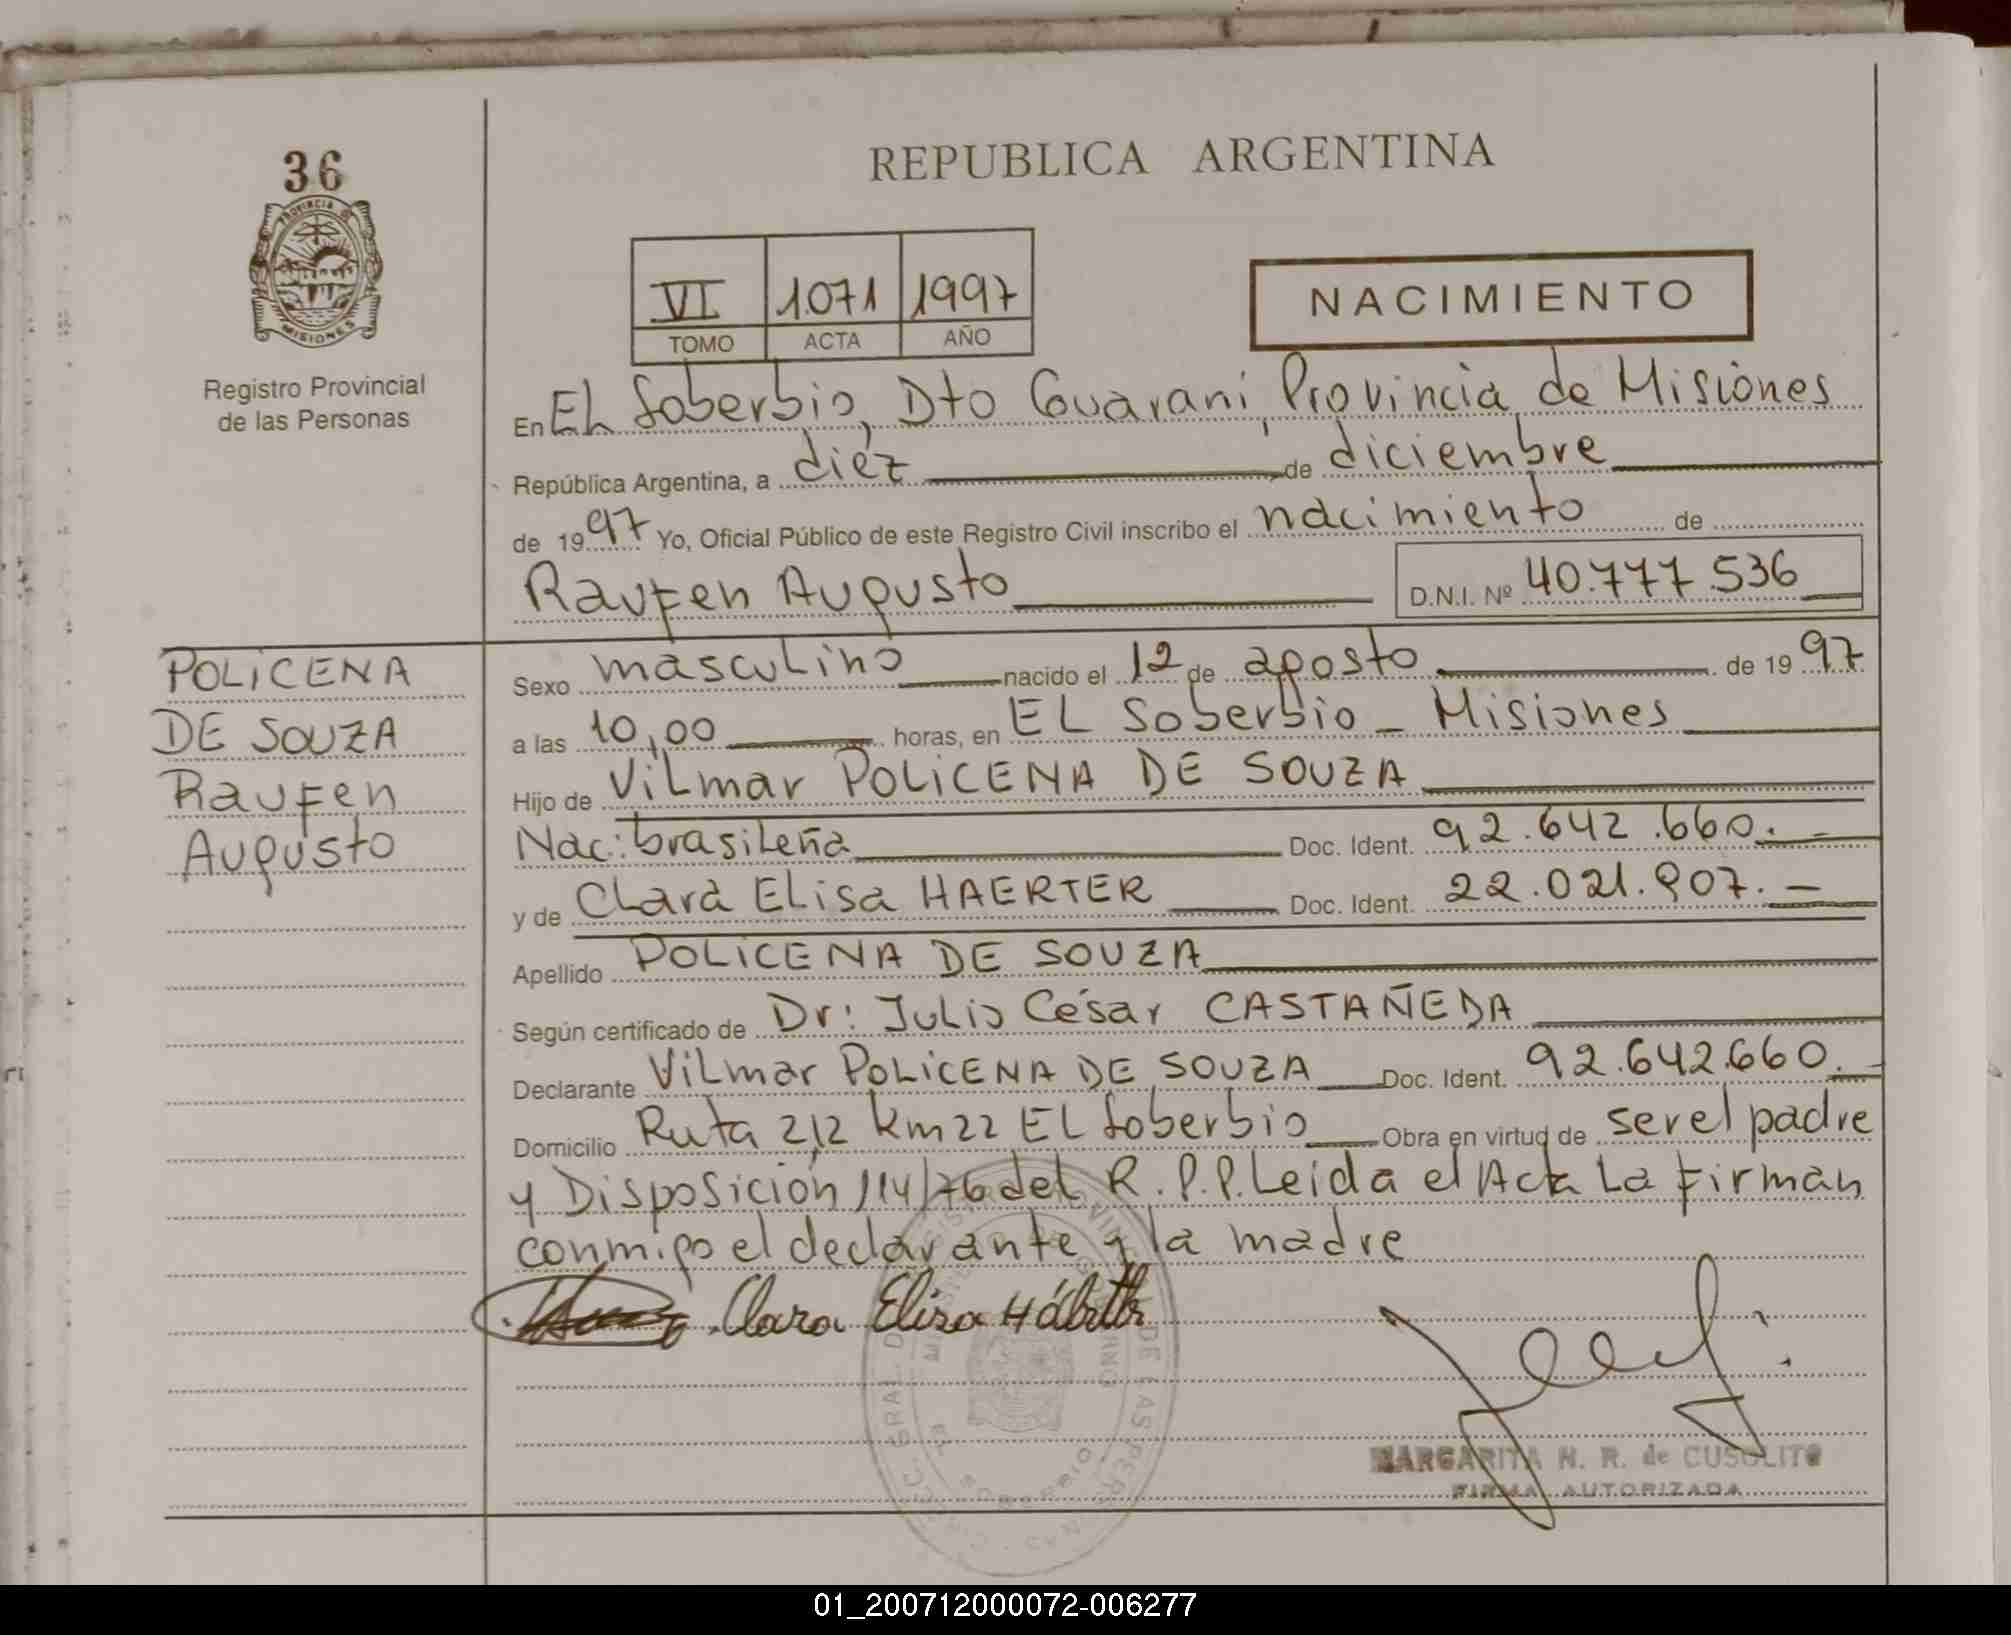 36
PROVINCIA DE
MISIONES
Registro Provincial
de las Personas
REPUBLICA ARGENTINA
VI 1.071 1997
TOMO ACTA AÑO
NACIMIENTO
En EL Soberbio, Dto Guaraní, Provincia de Misiones
República Argentina, a diéz de diciembre
de 1997 Yo, Oficial Público de este Registro Civil inscribo el nacimiento de
Raufen Augusto D.N.I. Nº 40.777.536
POLICENA
DE SOUZA
Raufen
Augusto
Sexo masculino nacido el 12 de agosto de 1997
a las 10,00 horas, en EL Soberbio - Misiones
Hijo de Vilmar POLICENA DE SOUZA
Nac: brasileña Doc. Ident. 92.642.660.-
y de Clara Elisa HAERTER Doc. Ident. 22.021.907.-
Apellido POLICENA DE SOUZA
Según certificado de Dr: Julio César CASTAÑEDA
Declarante Vilmar POLICENA DE SOUZA Doc. Ident. 92.642.660.-
Domicilio Ruta 212 km 22 EL Soberbio Obra en virtud de ser el padre
y Disposición 114/76 del R.P.P. Leída el Acta La firman
conmigo el declarante y la madre
Clara Elisa
MARGARITA N. R. de CUSOLITO
FIRMA AUTORIZADA
01_200712000072-006277